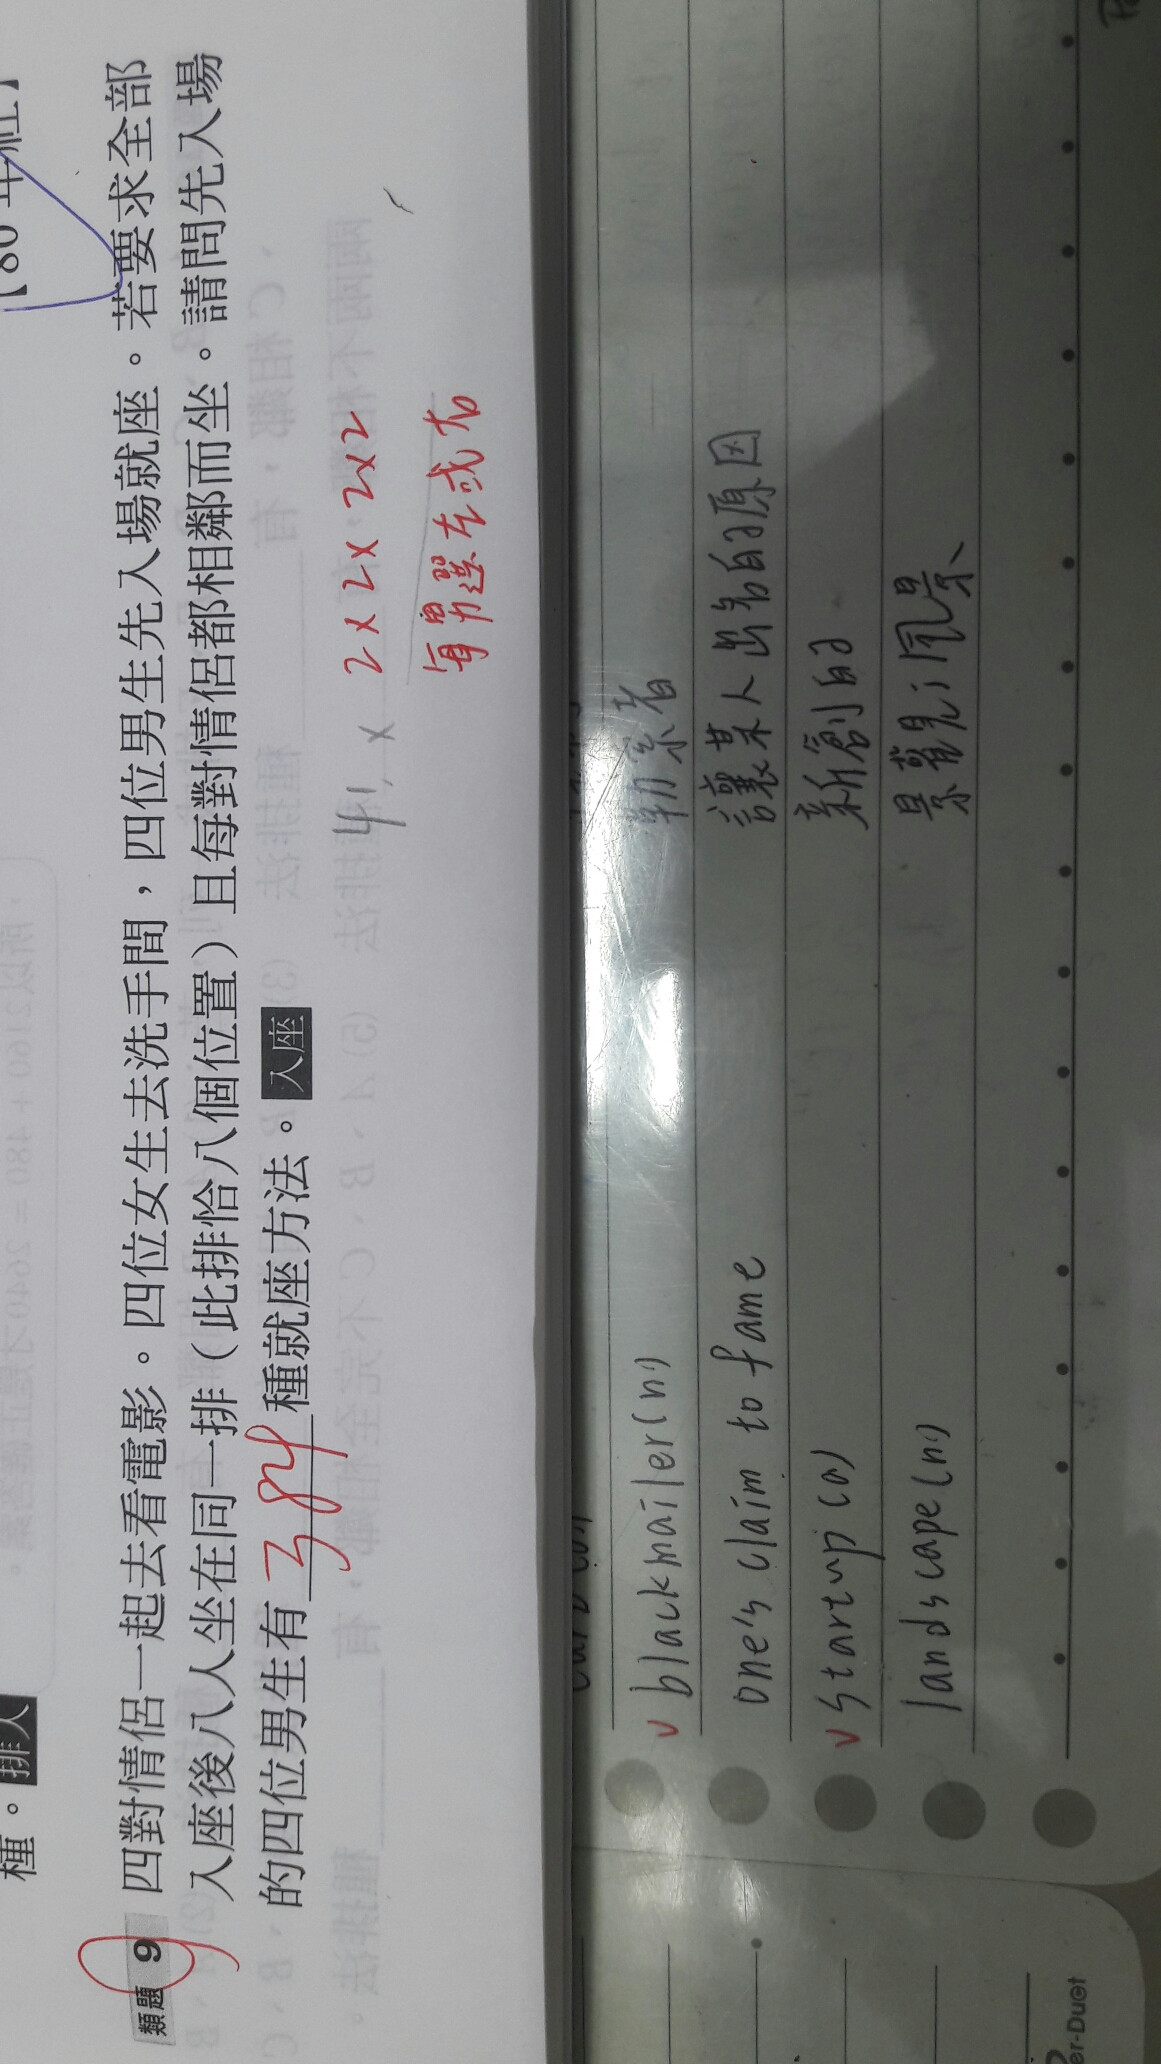 種。排人
類題 9 四對情侶一起去看電影。四位女生去洗手間，四位男生先入場就座。若要求全部
入座後八人坐在同一排（此排恰八個位置）且每對情侶都相鄰而坐。請問先入場
的四位男生有 384 種就座方法。入座
4! × 2×2×2×2
每男選左或右
v blackmailer(n) 勒索者
one's claim to fame 讓某人出名的原因
v startup (a) 新創的
landscape(n) 景觀;風景